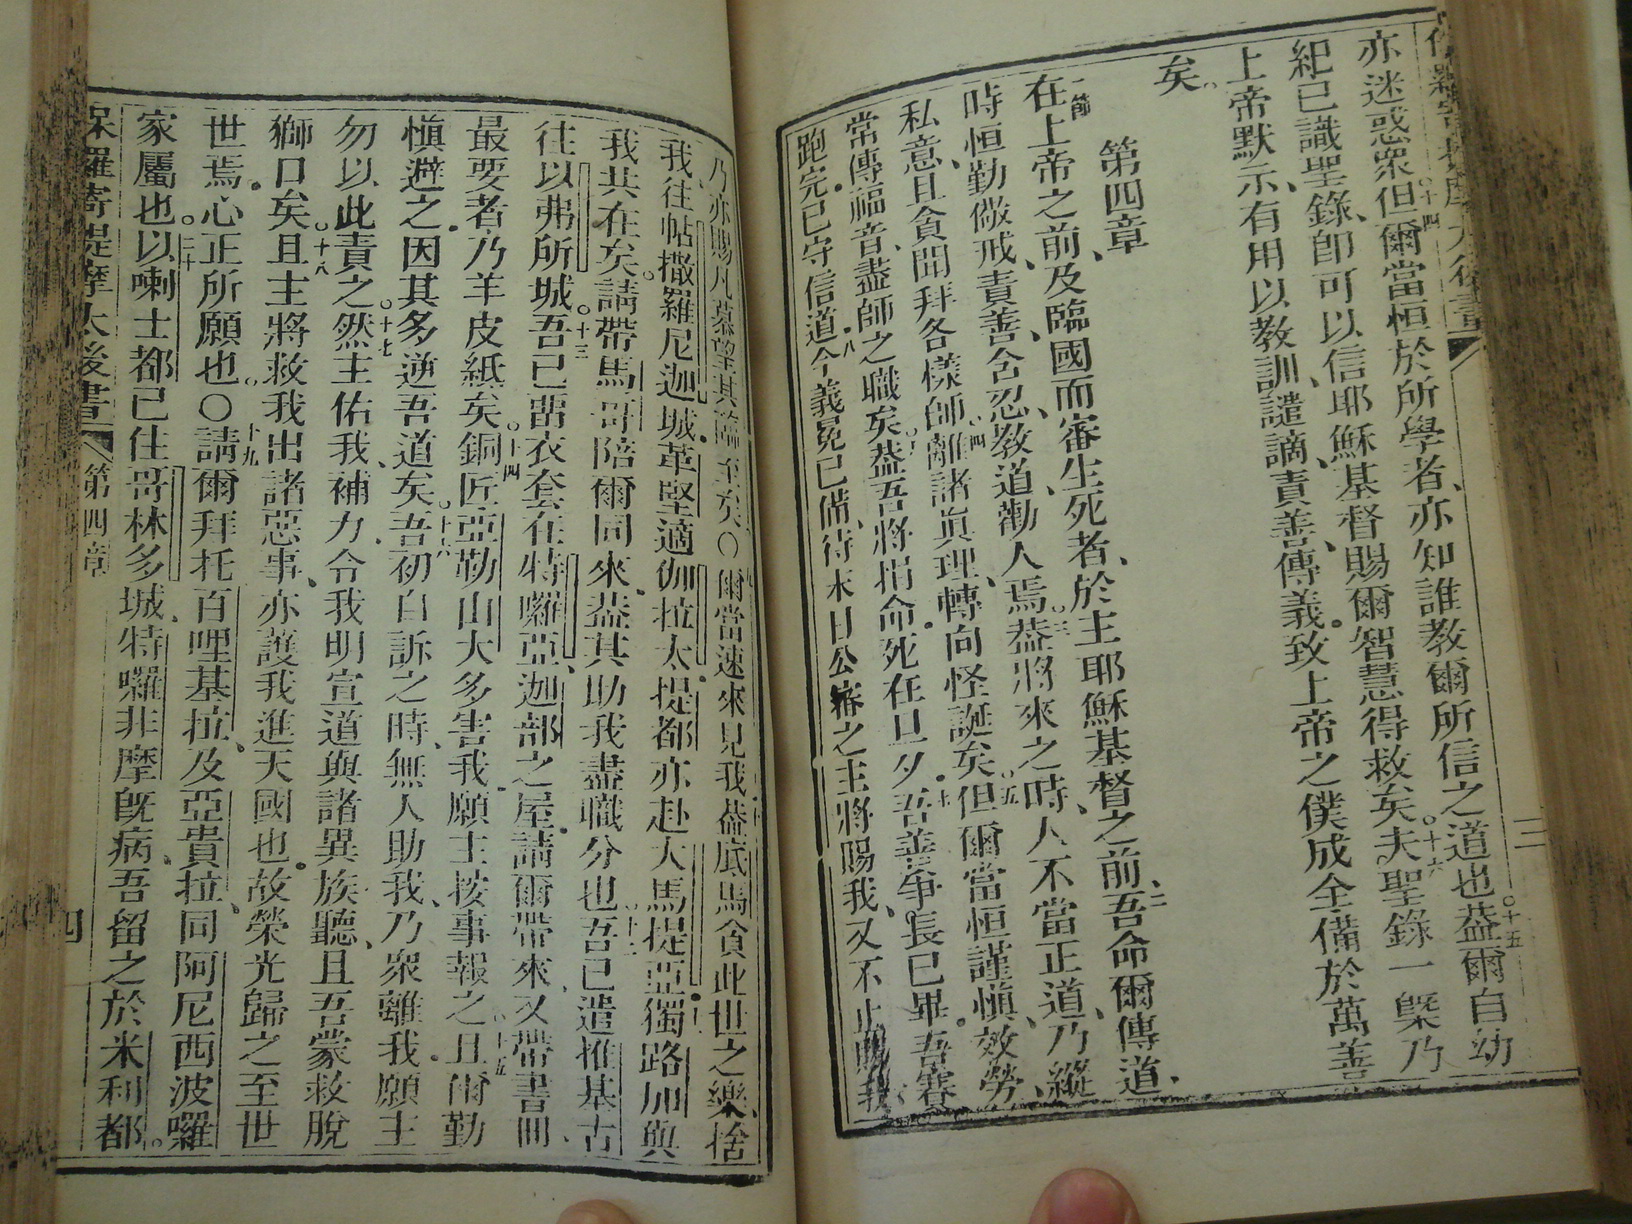 保羅寄提摩太後書 二
亦迷惑衆但爾當恒於所學者亦知誰教爾所信之道也葢爾自幼
紀已識聖錄卽可以信耶穌基督賜爾智慧得救矣夫聖錄一槩乃
上帝默示有用以教訓譴謫責善傳義致上帝之僕成全備於萬善
矣
第四章
在上帝之前及臨國而審生死者於主耶穌基督之前吾命爾傳道
時恒勤儆戒責善含忍教道勸人焉葢將來之時人不當正道乃縱
私意且貪聞拜各樣師離諸眞理轉向怪誕矣但爾當恒謹愼效勞
常傳福音盡師之職矣葢吾將捐命死在旦夕吾善爭長已畢吾賽
跑完已守信道今義冕已備待末日公審之主將賜我又不止賜我
乃亦賜凡慕望其臨至矣〇爾當速來見我葢底馬貪此世之樂捨
我往帖撒羅尼迦城革堅適伽拉太提都亦赴大馬提亞獨路加與
我共在矣請帶馬哥陪爾同來葢其助我盡職分也吾已遣推基古
往以弗所城吾已畱衣套在特囉亞迦部之屋請爾帶來又帶書冊
最要者乃羊皮紙矣銅匠亞勒山大多害我願主按事報之且爾勤
愼避之因其多逆吾道矣吾初自訴之時無人助我乃衆離我願主
勿以此責之然主佑我補力令我明宣道與諸異族聽且吾蒙救脫
獅口矣且主將救我出諸惡事亦護我進天國也故榮光歸之至世
世焉心正所願也〇請爾拜托百哩基拉及亞貴拉同阿尼西波囉
家屬也以喇士都已住哥林多城特囉非摩旣病吾留之於米利都
保羅寄提摩太後書 第四章 四